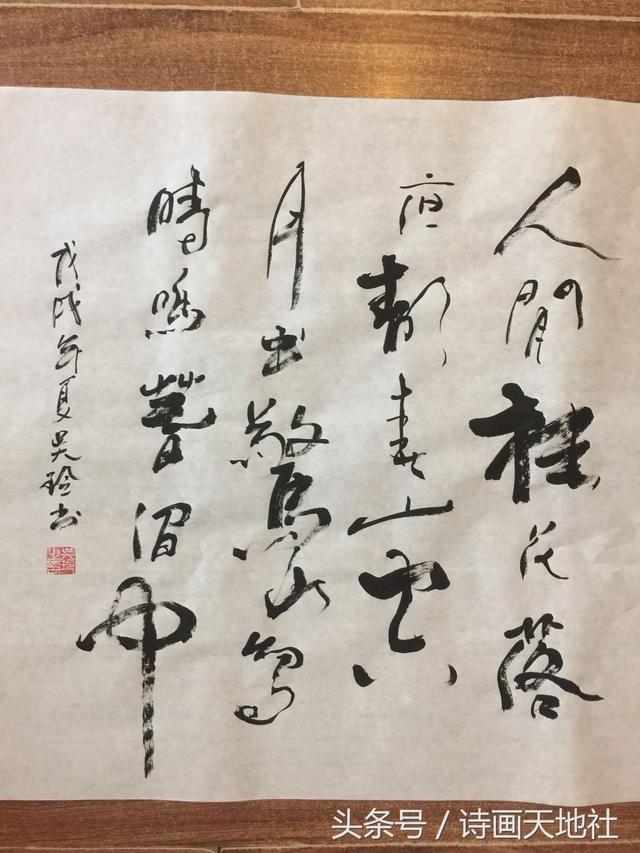 人閒桂花落
夜静春山空
月出驚山鳥
時鳴春澗中
戊戌年夏吴玲书
头条号／诗画天地社